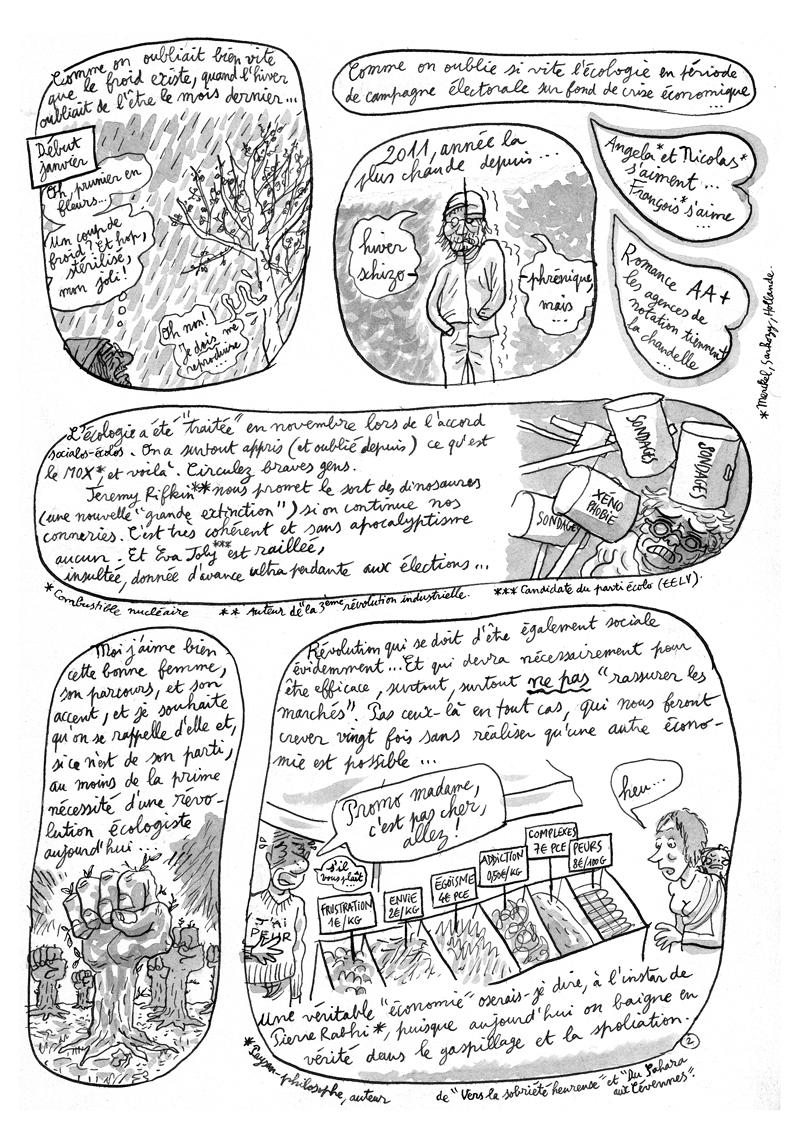 Comme on oubliait bien vite
que le froid existe, quand l'hiver
oubliait de l'être le mois dernier...
Début
janvier
Oh, prunier en
fleurs...
Un coup de
froid ? Et hop,
stérilisé,
mon joli !
Oh non !
Je dois me
reproduire
...
Comme on oublie si vite l'écologie en période
de campagne électorale sur fond de crise économique
...
2011, année la
plus chaude depuis...
hiver
schizo-
-phrénique,
mais
...
Angela* et Nicolas*
s'aiment...
François* s'aime
...
Romance AA+
les agences de
notation tiennent
la chandelle
...
* Merckel, Sarkozy, Hollande.
L'écologie a été "traitée" en novembre lors de l'accord
socialos-écolos. On a surtout appris (et oublié depuis) ce qu'est
le MOX*, et voilà. Circulez braves gens.
Jeremy Rifkin** nous promet le sort des dinosaures
(une nouvelle "grande extinction") si on continue nos
conneries. C'est très cohérent et sans apocalyptisme
aucun. Et Eva Joly*** est raillée,
insultée, donnée d'avance ultra perdante aux élections...
SONDAGES
SONDAGES
XENO
PHOBIE
SONDAGES
* Combustible nucléaire
** Auteur de "la 3ème révolution industrielle.
*** Candidate du parti écolo (EELV).
Moi j'aime bien
cette bonne femme,
son parcours, et son
accent, et je souhaite
qu'on se rappelle d'elle et,
si ce n'est de son parti,
au moins de la prime
nécessité d'une révo-
lution écologiste
aujourd'hui...
Révolution qui se doit d'être également sociale
évidemment... Et qui devra nécessairement pour
être efficace, surtout, surtout ne pas "rassurer les
marchés". Pas ceux-là en tout cas, qui nous feront
crever vingt fois sans réaliser qu'une autre écono-
mie est possible...
Promo madame,
c'est pas cher,
allez !
s'il
vous plaît
...
heu...
J'AI
PEUR
FRUSTRATION
1€/KG
ENVIE
2€/KG
ÉGOÏSME
4€ PCE
ADDICTION
0,50€/KG
COMPLEXES
7€ PCE
PEURS
8€/100G
Une véritable "économie" oserais-je dire, à l'instar de
Pierre Rabhi*, puisque aujourd'hui on baigne en
vérité dans le gaspillage et la spoliation.
2
* Paysan-philosophe, auteur
de "Vers la sobriété heureuse" et "Du Sahara
aux Cévennes".